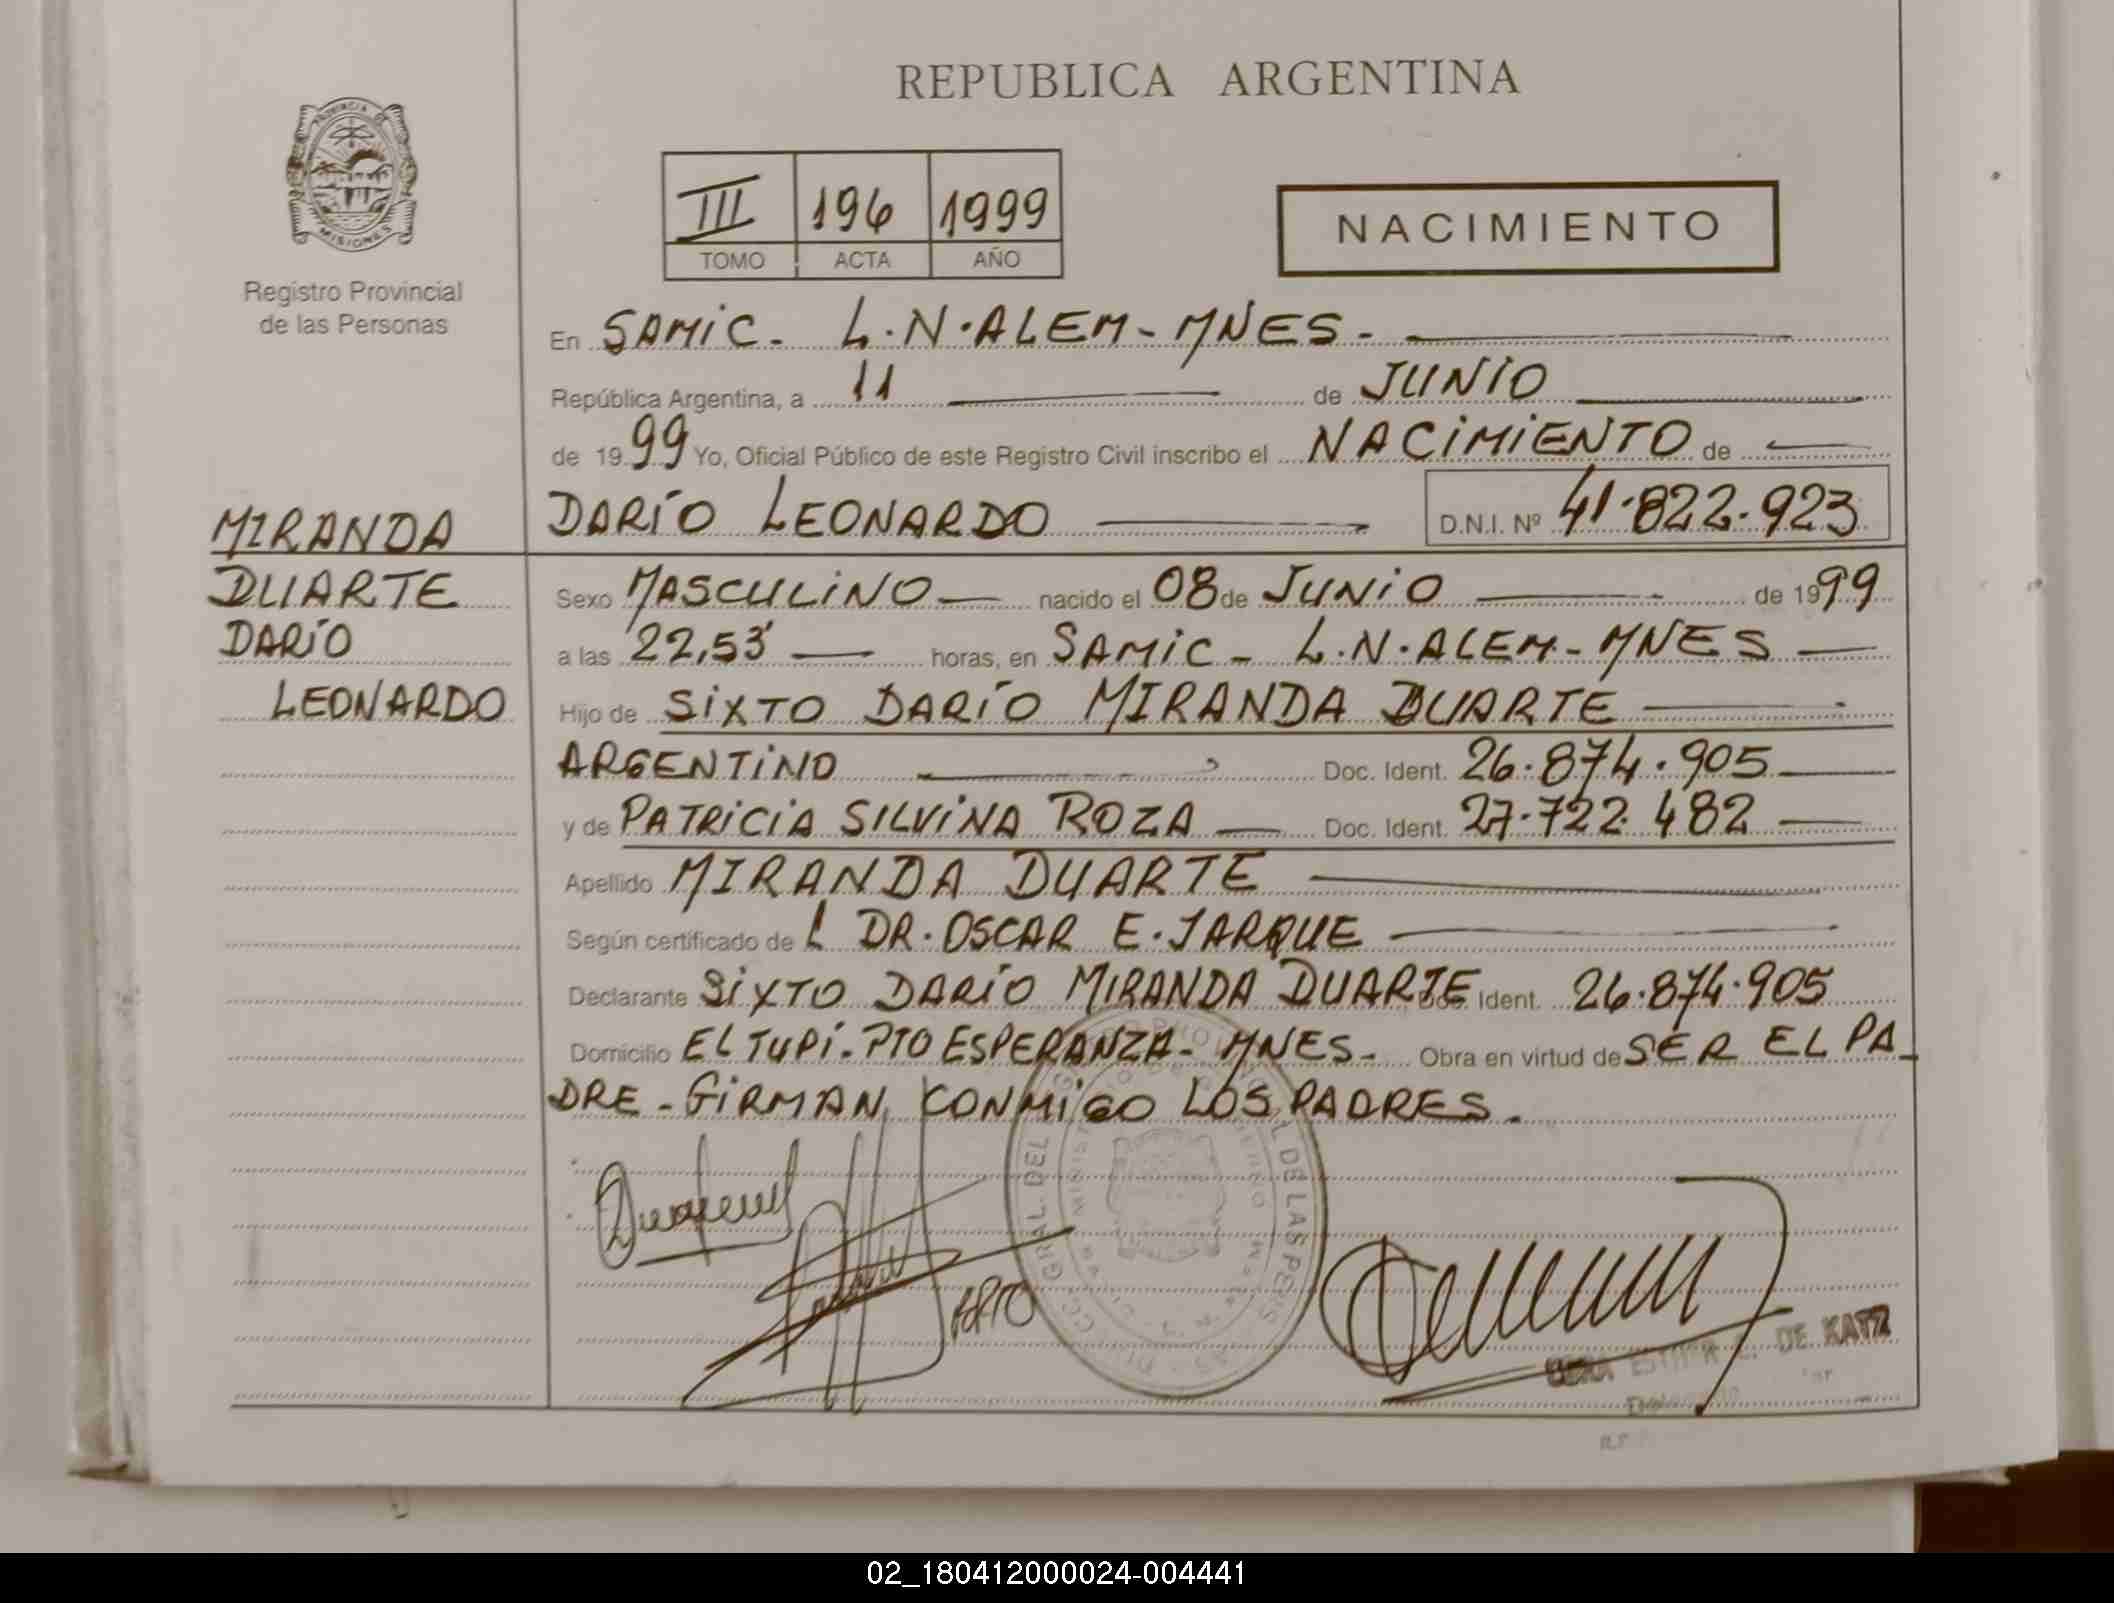 REPUBLICA ARGENTINA
PROVINCIA DE
MISIONES
Registro Provincial
de las Personas
III 196 1999
TOMO ACTA AÑO
NACIMIENTO
En SAMIC - L.N. ALEM - MNES -
República Argentina, a 11 de JUNIO
de 1999 Yo, Oficial Público de este Registro Civil inscribo el NACIMIENTO de
DARÍO LEONARDO D.N.I. Nº 41.822.923
MIRANDA
DUARTE
DARÍO
LEONARDO
Sexo MASCULINO nacido el 08 de JUNIO de 1999
a las 22,53' horas, en SAMIC - L.N. ALEM - MNES
Hijo de SIXTO DARÍO MIRANDA DUARTE
ARGENTINO Doc. Ident. 26.874.905
y de PATRICIA SILVINA ROZA Doc. Ident. 27.722.482
Apellido MIRANDA DUARTE
Según certificado de L DR. OSCAR E. JARQUE
Declarante SIXTO DARÍO MIRANDA DUARTE Doc. Ident. 26.874.905
Domicilio EL TUPI - PTO ESPERANZA - MNES - Obra en virtud de SER EL PA-
DRE - GIRMAN CONMIGO LOS PADRES.
DE KATZ
02_180412000024-004441